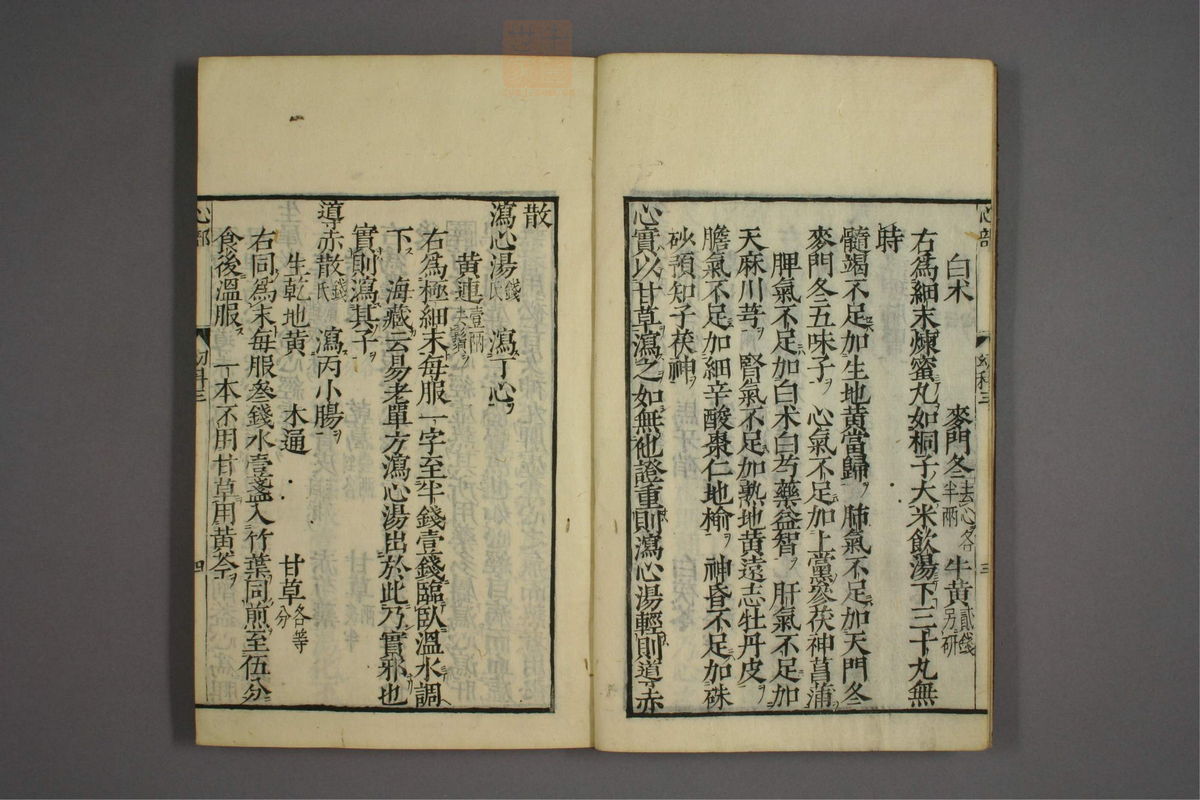 心部　幼科三　三
白朮　麥門冬去心各半兩　牛黄貳錢另研
右爲細末煉蜜丸如桐子大米飲湯下三十丸無
時
髓竭不足加生地黄當歸　肺氣不足加天門冬
麥門冬五味子　心氣不足加上黨參茯神菖蒲
脾氣不足加白朮白芍藥益智　肝氣不足加
天麻川芎　腎氣不足加熟地黄遠志牡丹皮
膽氣不足加細辛酸棗仁地榆　神昏不足加硃
砂預知子茯神
心實以甘草瀉之如無他證重則瀉心湯輕則導赤
散
瀉心湯錢氏　瀉丁心
黄連壹兩去鬚
右爲極細末每服一字至半錢壹錢臨臥溫水調
下　海藏云易老單方瀉心湯出於此乃實邪也
實則瀉其子
導赤散錢氏　瀉丙小腸
生乾地黄　木通　甘草各等分
右同爲末每服叄錢水壹盞入竹葉同煎至伍分
食後溫服　一本不用甘草用黄芩
心部　幼科三　四